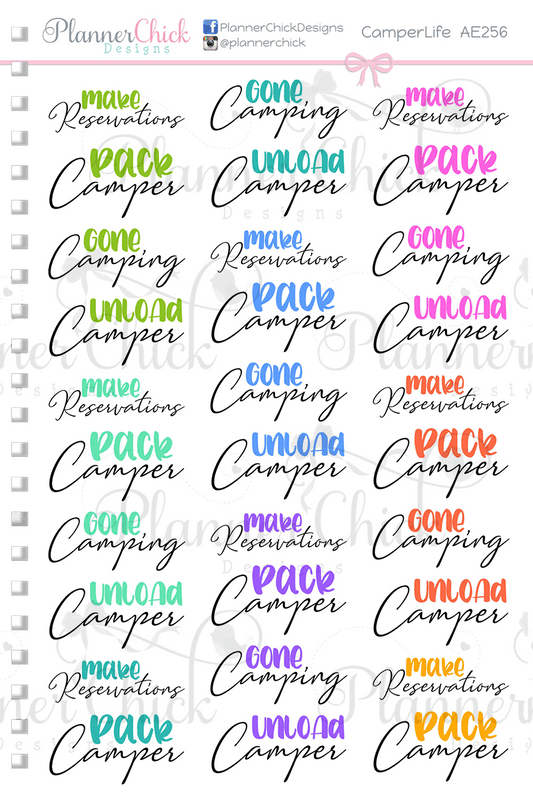 PlannerChick
Designs
PlannerChickDesigns
@plannerchick
CamperLife AE256
make
Reservations
GONE
Camping
make
Reservations
PACK
Camper
UNLOAd
Camper
PACK
Camper
GONE
Camping
make
Reservations
GONE
Camping
UNLOAd
Camper
PACK
Camper
UNLOAd
Camper
make
Reservations
GONE
Camping
make
Reservations
PACK
Camper
UNLOAd
Camper
PACK
Camper
GONE
Camping
make
Reservations
GONE
Camping
UNLOAd
Camper
PACK
Camper
UNLOAd
Camper
make
Reservations
GONE
Camping
make
Reservations
PACK
Camper
UNLOAd
Camper
PACK
Camper